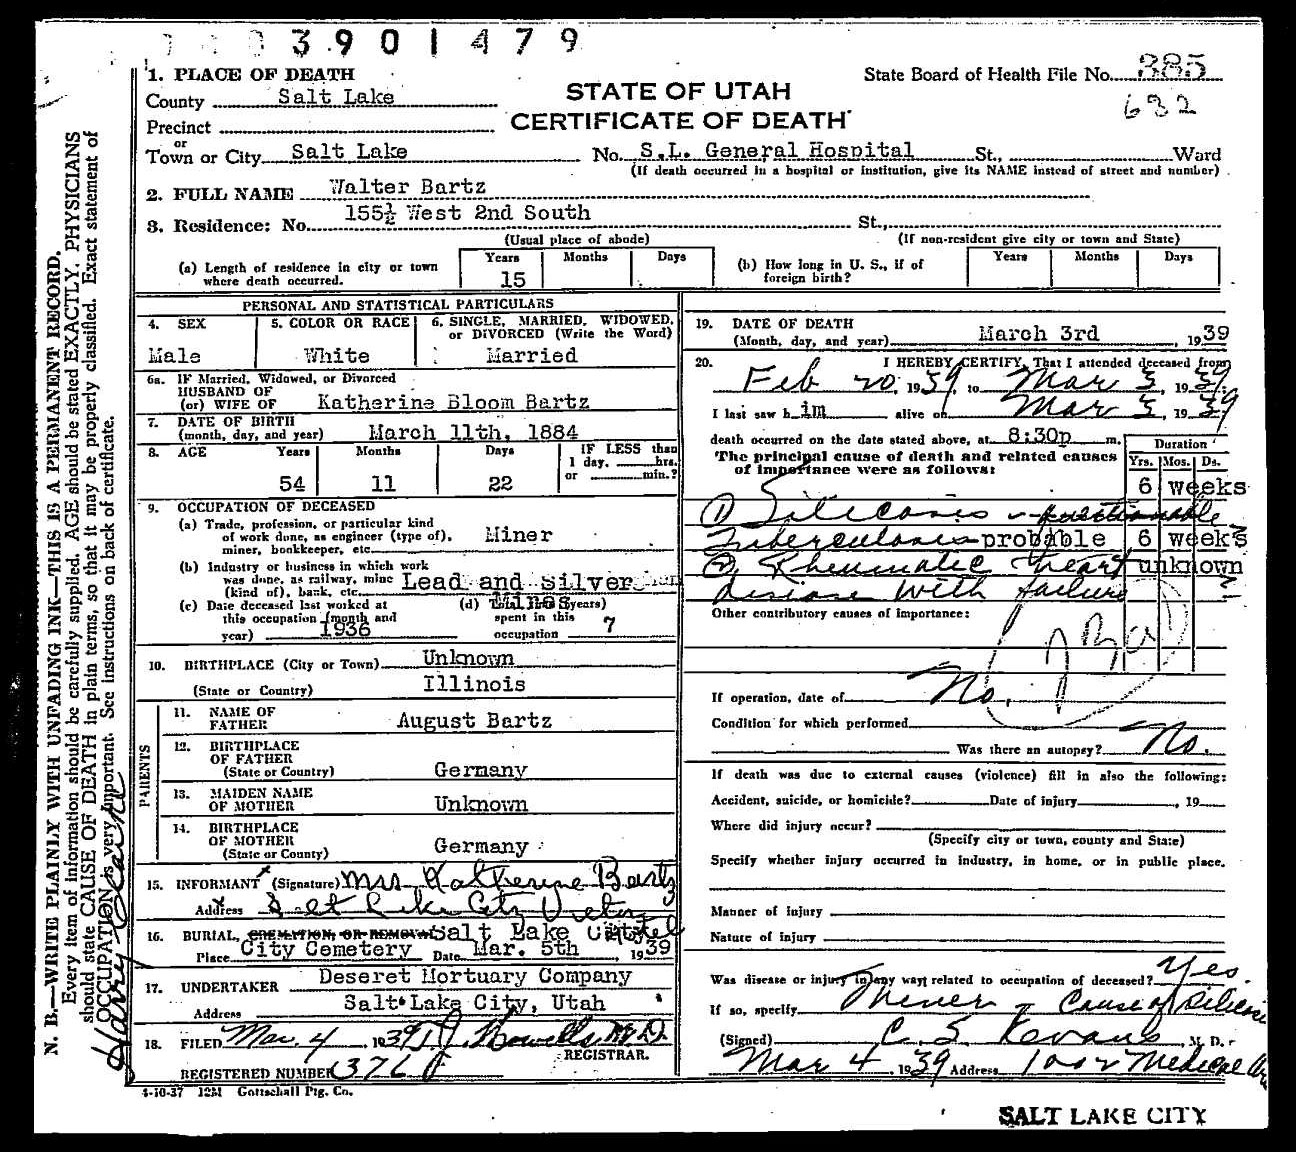 3901479
1. PLACE OF DEATH
State Board of Health File No. 385
County Salt Lake
STATE OF UTAH
632
Precinct
CERTIFICATE OF DEATH
or
Town or City Salt Lake No. S.L. General Hospital St., Ward
(If death occurred in a hospital or institution, give its NAME instead of street and number)
2. FULL NAME Walter Bartz
3. Residence: No. 155½ West 2nd South St.,
(Usual place of abode) (If non-resident give city or town and State)
(a) Length of residence in city or town where death occurred. Years 15 Months Days
(b) How long in U. S., if of foreign birth? Years Months Days
PERSONAL AND STATISTICAL PARTICULARS
4. SEX 5. COLOR OR RACE 6. SINGLE, MARRIED, WIDOWED, or DIVORCED (Write the Word)
Male White Married
6a. IF Married, Widowed, or Divorced
HUSBAND OF
(or) WIFE OF Katherine Bloom Bartz
7. DATE OF BIRTH
(month, day, and year) March 11th, 1884
8. AGE Years Months Days IF LESS than
1 day, hrs.
or min.?
54 11 22
9. OCCUPATION OF DECEASED
(a) Trade, profession, or particular kind
of work done, as engineer (type of), Miner
miner, bookkeeper, etc.
(b) Industry or business in which work
was done, as railway, mine Lead and Silver
(kind of), bank, etc. Mines
(c) Date deceased last worked at (d) Total time (years)
this occupation (month and spent in this
year) 1936 occupation 7
10. BIRTHPLACE (City or Town) Unknown
(State or Country) Illinois
PARENTS
11. NAME OF
FATHER August Bartz
12. BIRTHPLACE
OF FATHER
(State or Country) Germany
13. MAIDEN NAME
OF MOTHER Unknown
14. BIRTHPLACE
OF MOTHER
(State or Country) Germany
15. INFORMANT (Signature) Mrs Katherine Bartz
Address Salt Lake City
16. BURIAL, CREMATION, OR REMOVAL Salt Lake
Place City Cemetery Date Mar. 5th 1939
17. UNDERTAKER Deseret Mortuary Company
Address Salt Lake City, Utah
18. FILED Mar. 4, 1939 T.J. Howells M.D.
REGISTRAR.
REGISTERED NUMBER 376
4-10-37 12M Gottschall Ptg. Co.
19. DATE OF DEATH
(Month, day, and year) March 3rd, 1939
20. I HEREBY CERTIFY, That I attended deceased from
Feb 20, 1939, to Mar 3, 1939.
I last saw him alive on Mar 3, 1939
death occurred on the date stated above, at 8:30p m.
The principal cause of death and related causes
of importance were as follows:
Duration
Yrs. Mos. Ds.
6 weeks
① Silicosis - questionable
Tuberculosis probable 6 weeks
② Rheumatic heart unknown
disease with failure
Other contributory causes of importance:
If operation, date of No.
Condition for which performed
Was there an autopsy? No.
If death was due to external causes (violence) fill in also the following:
Accident, suicide, or homicide? Date of injury, 19
Where did injury occur?
(Specify city or town, county and State)
Specify whether injury occurred in industry, in home, or in public place.
Manner of injury
Nature of injury
Was disease or injury in any way related to occupation of deceased? Yes.
If so, specify Miner - Cause of Silicosis
(Signed) C. S. Kevans, M. D.
Mar 4, 1939 Address 1002 Medical
SALT LAKE CITY
N. B.—WRITE PLAINLY WITH UNFADING INK—THIS IS A PERMANENT RECORD.
Every item of information should be carefully supplied. AGE should be stated EXACTLY. PHYSICIANS
should state CAUSE OF DEATH in plain terms, so that it may be properly classified. Exact statement of
OCCUPATION is very important. See instructions on back of certificate.